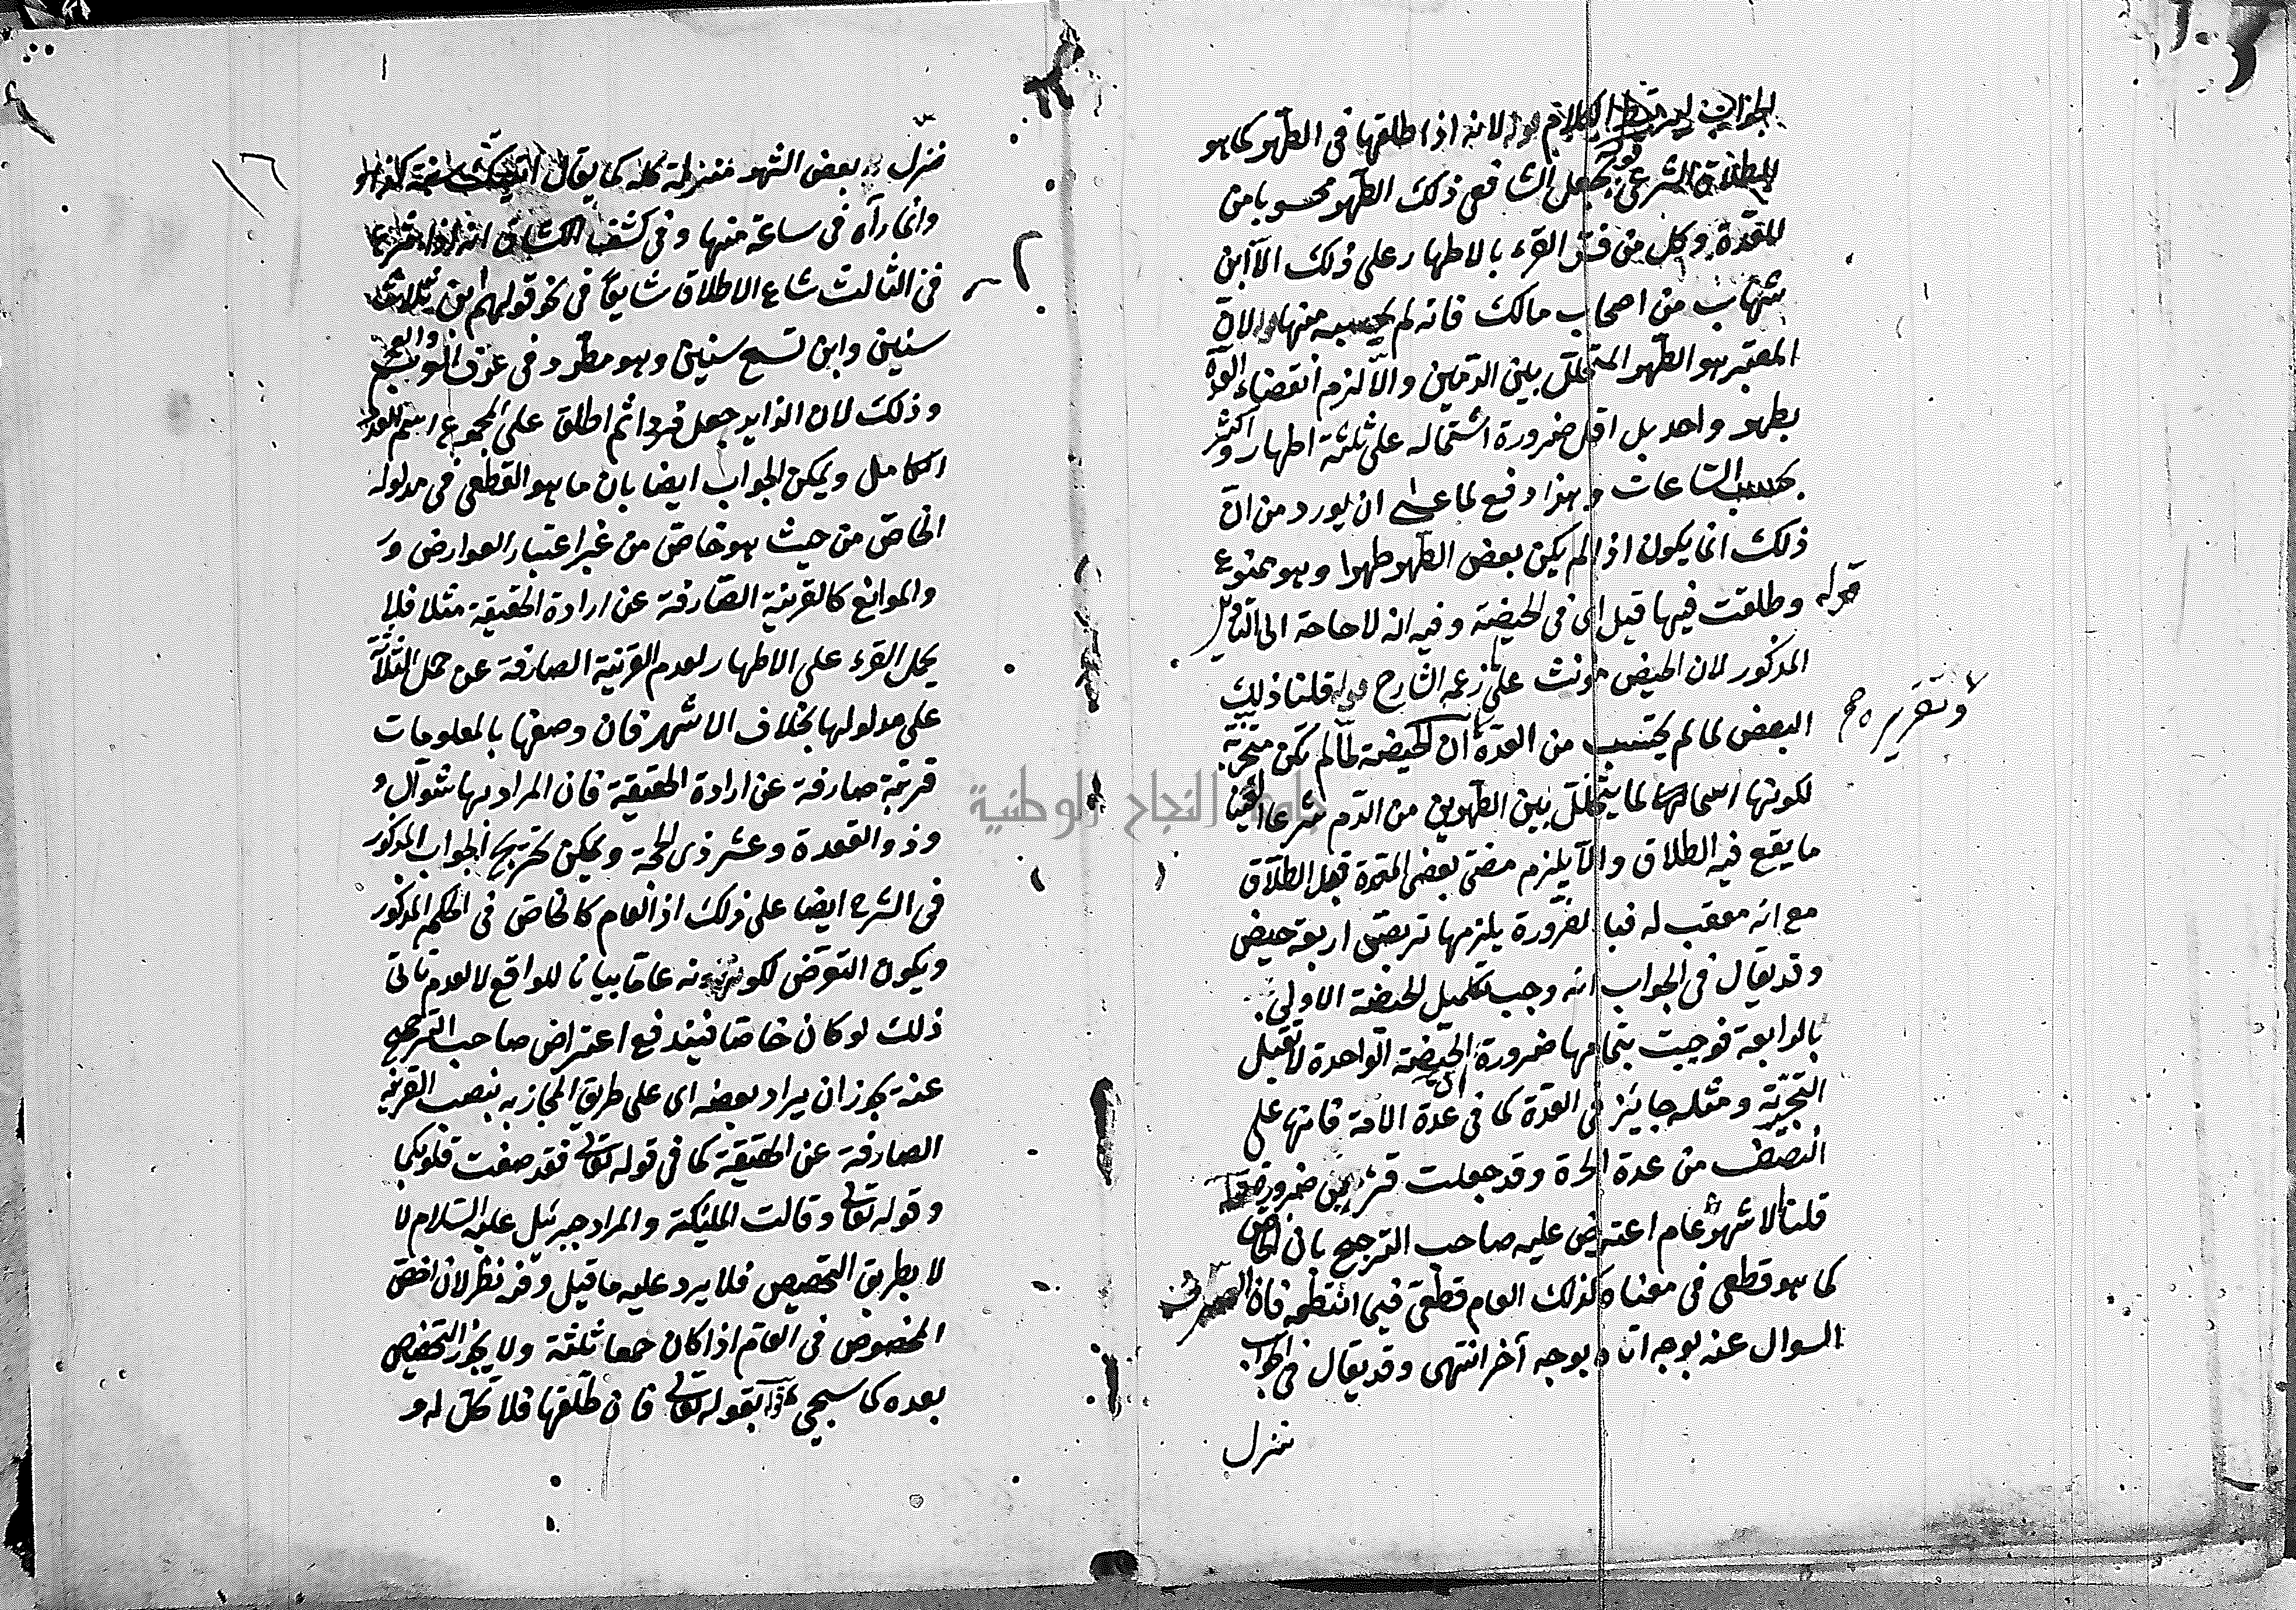 الكلام قوله لانه اذا طلقها فى الطهر كما هو
الطلاق الشرعى يجعل الشافعى ذلك الطهر محسوبا من
العدة وكل من فسر القرء بالاطهار على ذلك الا ابن
شهاب من اصحاب مالك فانه لم يحسبه منها ولان
المعتبر هو الطهر المتخلل بين الدمين والا لزم انقضاء العدة
بطهر واحد بل اقل ضرورة اشتماله على ثلثة اطهار واكثر
بحسب الساعات وبهذا دفع لما عسى ان يورد من ان
ذلك انما يكون اذا لم يكن بعض الطهر طهرا وهو ممنوع
قوله وطلقت فيها قيل اى فى الحيضة وفيه انه لا حاجة الى التاويل
المذكور لان الحيض مونث على زعمه الشارح قوله قلنا ذلك
وتقريره
البعض لما لم يحتسب من العدة ان الحيضة لما لم تكن متجزية
لكونها اسما لما يتخلل بين الطهرين من الدم شرعا
ما يقع فيه الطلاق والا يلزم مضى بعض العدة قبل الطلاق
مع انه معقب له فبالضرورة يلزمها تربص اربعة حيض
وقد يقال فى الجواب انه وجب تكميل الحيضة الاولى
بالرابعة فوجبت بتمامها ضرورة ان الحيضة الواحدة لا تقبل
التجزية ومثله جائز فى العدة كما فى عدة الامة فانها على
النصف من عدة الحرة وقد جعلت قرئين ضرورة قوله
قلنا الاشهر عام اعترض عليه صاحب الترجيح بان الخاص
كما هو قطعى فى معناه كذلك العام قطعى فيما انتظمه فان
السوال عنه بوجه ان وبوجه آخر انتهى وقد يقال فى الجواب
ننزل
ننزل بعض الشهر منزلة كله كما يقال سنة كذا
وانما رآه فى ساعة منها وفى كشف الكشاف انه
فى الثالث شاع الاطلاق شايعا فى نحو قولهم ابن ثلاث
سنين وابن تسع سنين وهو مطرد فى عرف العرب والعجم
وذلك لان الزايد جعل فردا ثم اطلق على المجموع اسم العدد
الكامل ويمكن الجواب ايضا بان ما هو القطعى فى مدلوله
الخاص من حيث هو خاص من غير اعتبار العوارض و
والموانع كالقرينة الصارفة عن ارادة الحقيقة مثلا فلا
يحمل القرء على الاطهار لعدم القرينة الصارفة عن حمل الثلاثة
على مدلولها بخلاف الاشهر فان وصفها بالمعلومات
قرينة صارفة عن ارادة الحقيقة فان المراد بها شوال و
وذو القعدة وعشر ذى الحجة ويمكن تخريج الجواب المذكور
فى الشرح ايضا على ذلك اذ العام كالخاص فى الحكم المذكور
ويكون التعرض لكونه عاما بيانا للواقع لا لعدم تأتى
ذلك لو كان خاصا فيندفع اعتراض صاحب الترجيح
عنه يجوز ان يراد بعضه اى على طريق المجاز به بنصب القرينة
الصارفة عن الحقيقة كما فى قوله تعالى فقد صغت قلوبكما
وقوله تعالى وقالت الملئكة والمراد جبرئيل عليه السلام لا
لا بطريق التخصيص فلا يرد عليه ما قيل وفيه نظر لان اخص
الخصوص فى العام اذا كان جمعا ثلثة ولا يجوز التخصيص
بعده كما سيجئ قوله بقوله تعالى فان طلقها فلا تحل له و
جامعة النجاح الوطنية